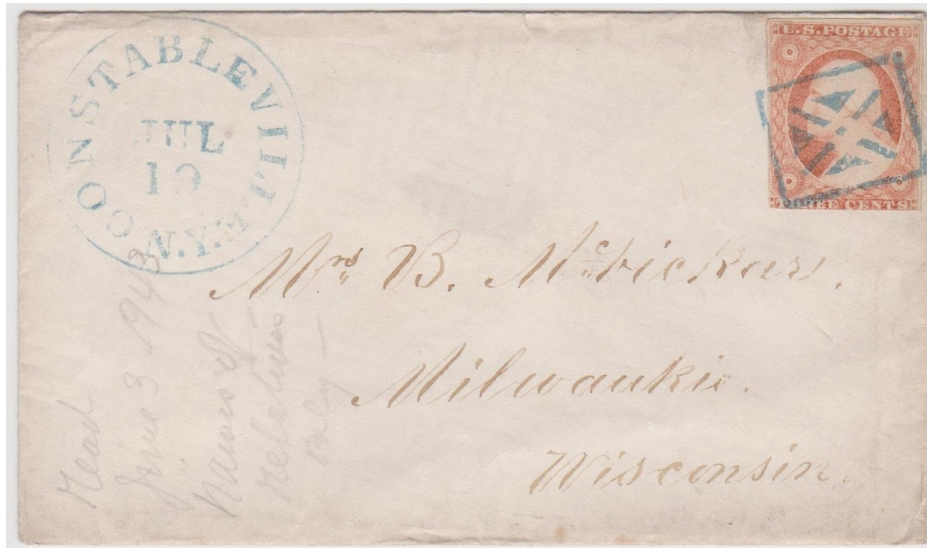 CONSTABLEVILLE
N.Y.
JUL
19
U.S. POSTAGE
THREE CENTS
Mrs B. McVickar.
Milwaukie.
Wisconsin.
Read
June 3 1943
Names of
relatives
only